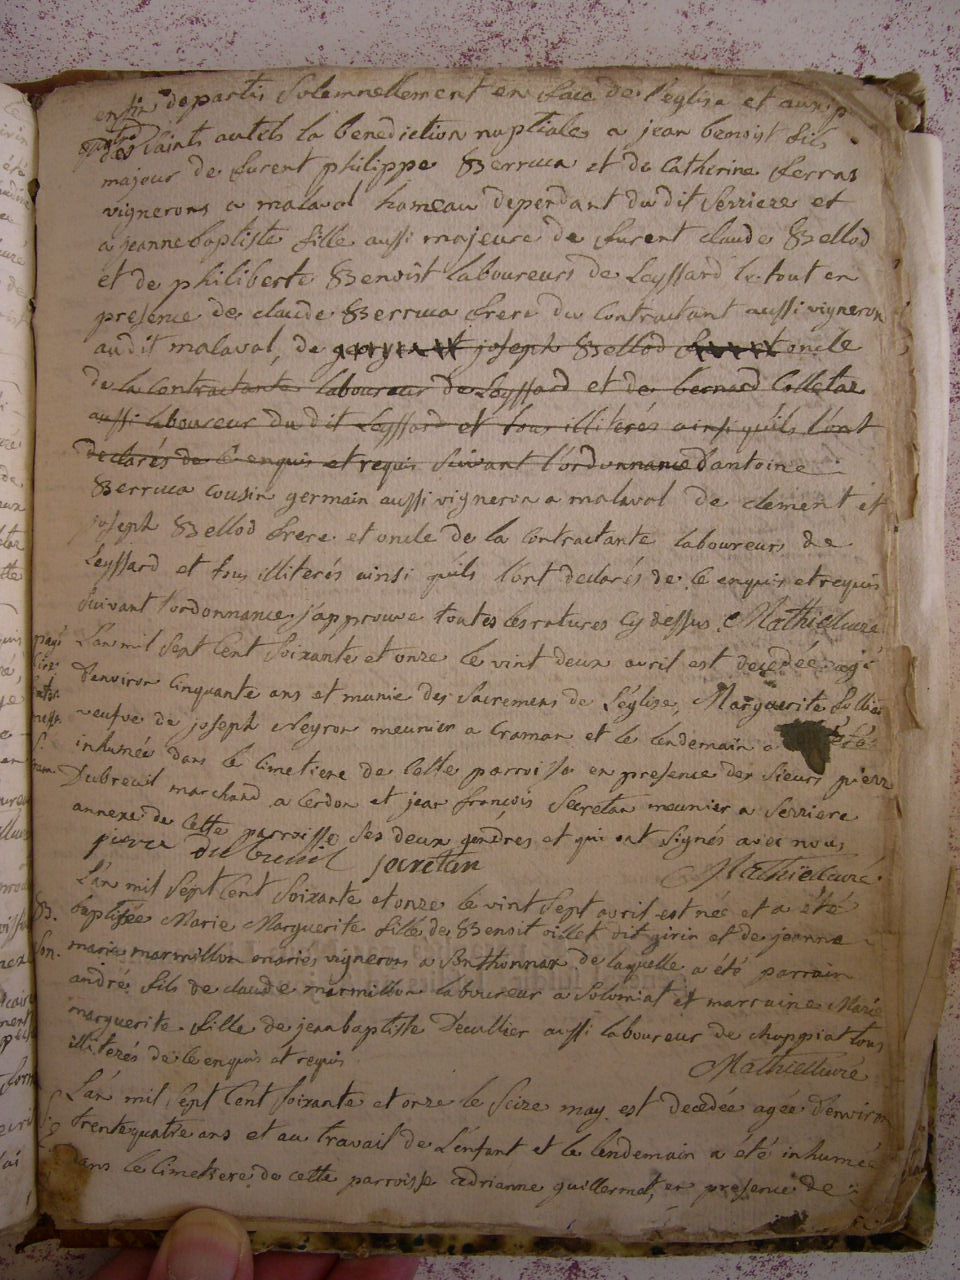 enfin departis solemnellement en face de l'eglise et aux p
des saints autels la benediction nuptiales a jean benoist fils
majeur de furent philippe Berruca et de Catherine ferras
vignerons a malaval hameau dependant du dit Serriere et
a jeanne baptiste fille aussi majeure de furent claude Bellod
et de philiberte Benoist laboureurs de Leyssard le tout en
presence de claude Berruca frere du contractant aussi vigneron
audit malaval, de joseph Bellod oncle
de la contractante laboureur de Leyssard et de bernard Colletaz
aussi laboureur du dit Leyssard et tous illiterés ainsi quils l'ont
declarés de ce enquis et requis suivant l'ordonnance d'antoine
Berruca cousin germain aussi vigneron a malaval de clement et
joseph Bellod frere et oncle de la contractante laboureurs de
Leyssard et tous illiterés ainsi quils l'ont declarés de ce enquis et requis
suivant l'ordonnance j'approuve toutes les ratures cy dessus Mathieu curé
L'an mil sept cent soixante et onze le vint deux avril est decedée agé
d'environ cinquante ans et munie des sacremens de l'église, Marguerite
veufve de joseph Neyron meunier a Craman et le lendemain a été
inhumée dans le cimetiere de cette parroisse en presence des sieurs pierre
Dubreuil marchand a Cerdon et jean françois Secretan meunier a Serriere
annexe de cette parroisse ses deux gendres et qui ont signés avec nous
pierre Dubreuil secretan Mathieu curé
L'an mil sept cent soixante et onze le vint sept avril est née et a été
B. baptisée Marie Marguerite fille de Benoit villet dit girin et de jeanne
marie marmillon mariés vignerons a Senthonnax de laquelle a été parrain
andré fils de claude mermillon laboureur a Solomiat et marraine Marie
marguerite fille de jean baptiste Decullier aussi laboureur de chappiat tous
illiterés de ce enquis et requis Mathieu curé
L'an mil sept cent soixante et onze le seize may est decedée agée d'environ
trente quatre ans et au travail de l'enfant et le lendemain a été inhumée
dans le cimetiere de cette parroisse adrianne guillermet, en presence de